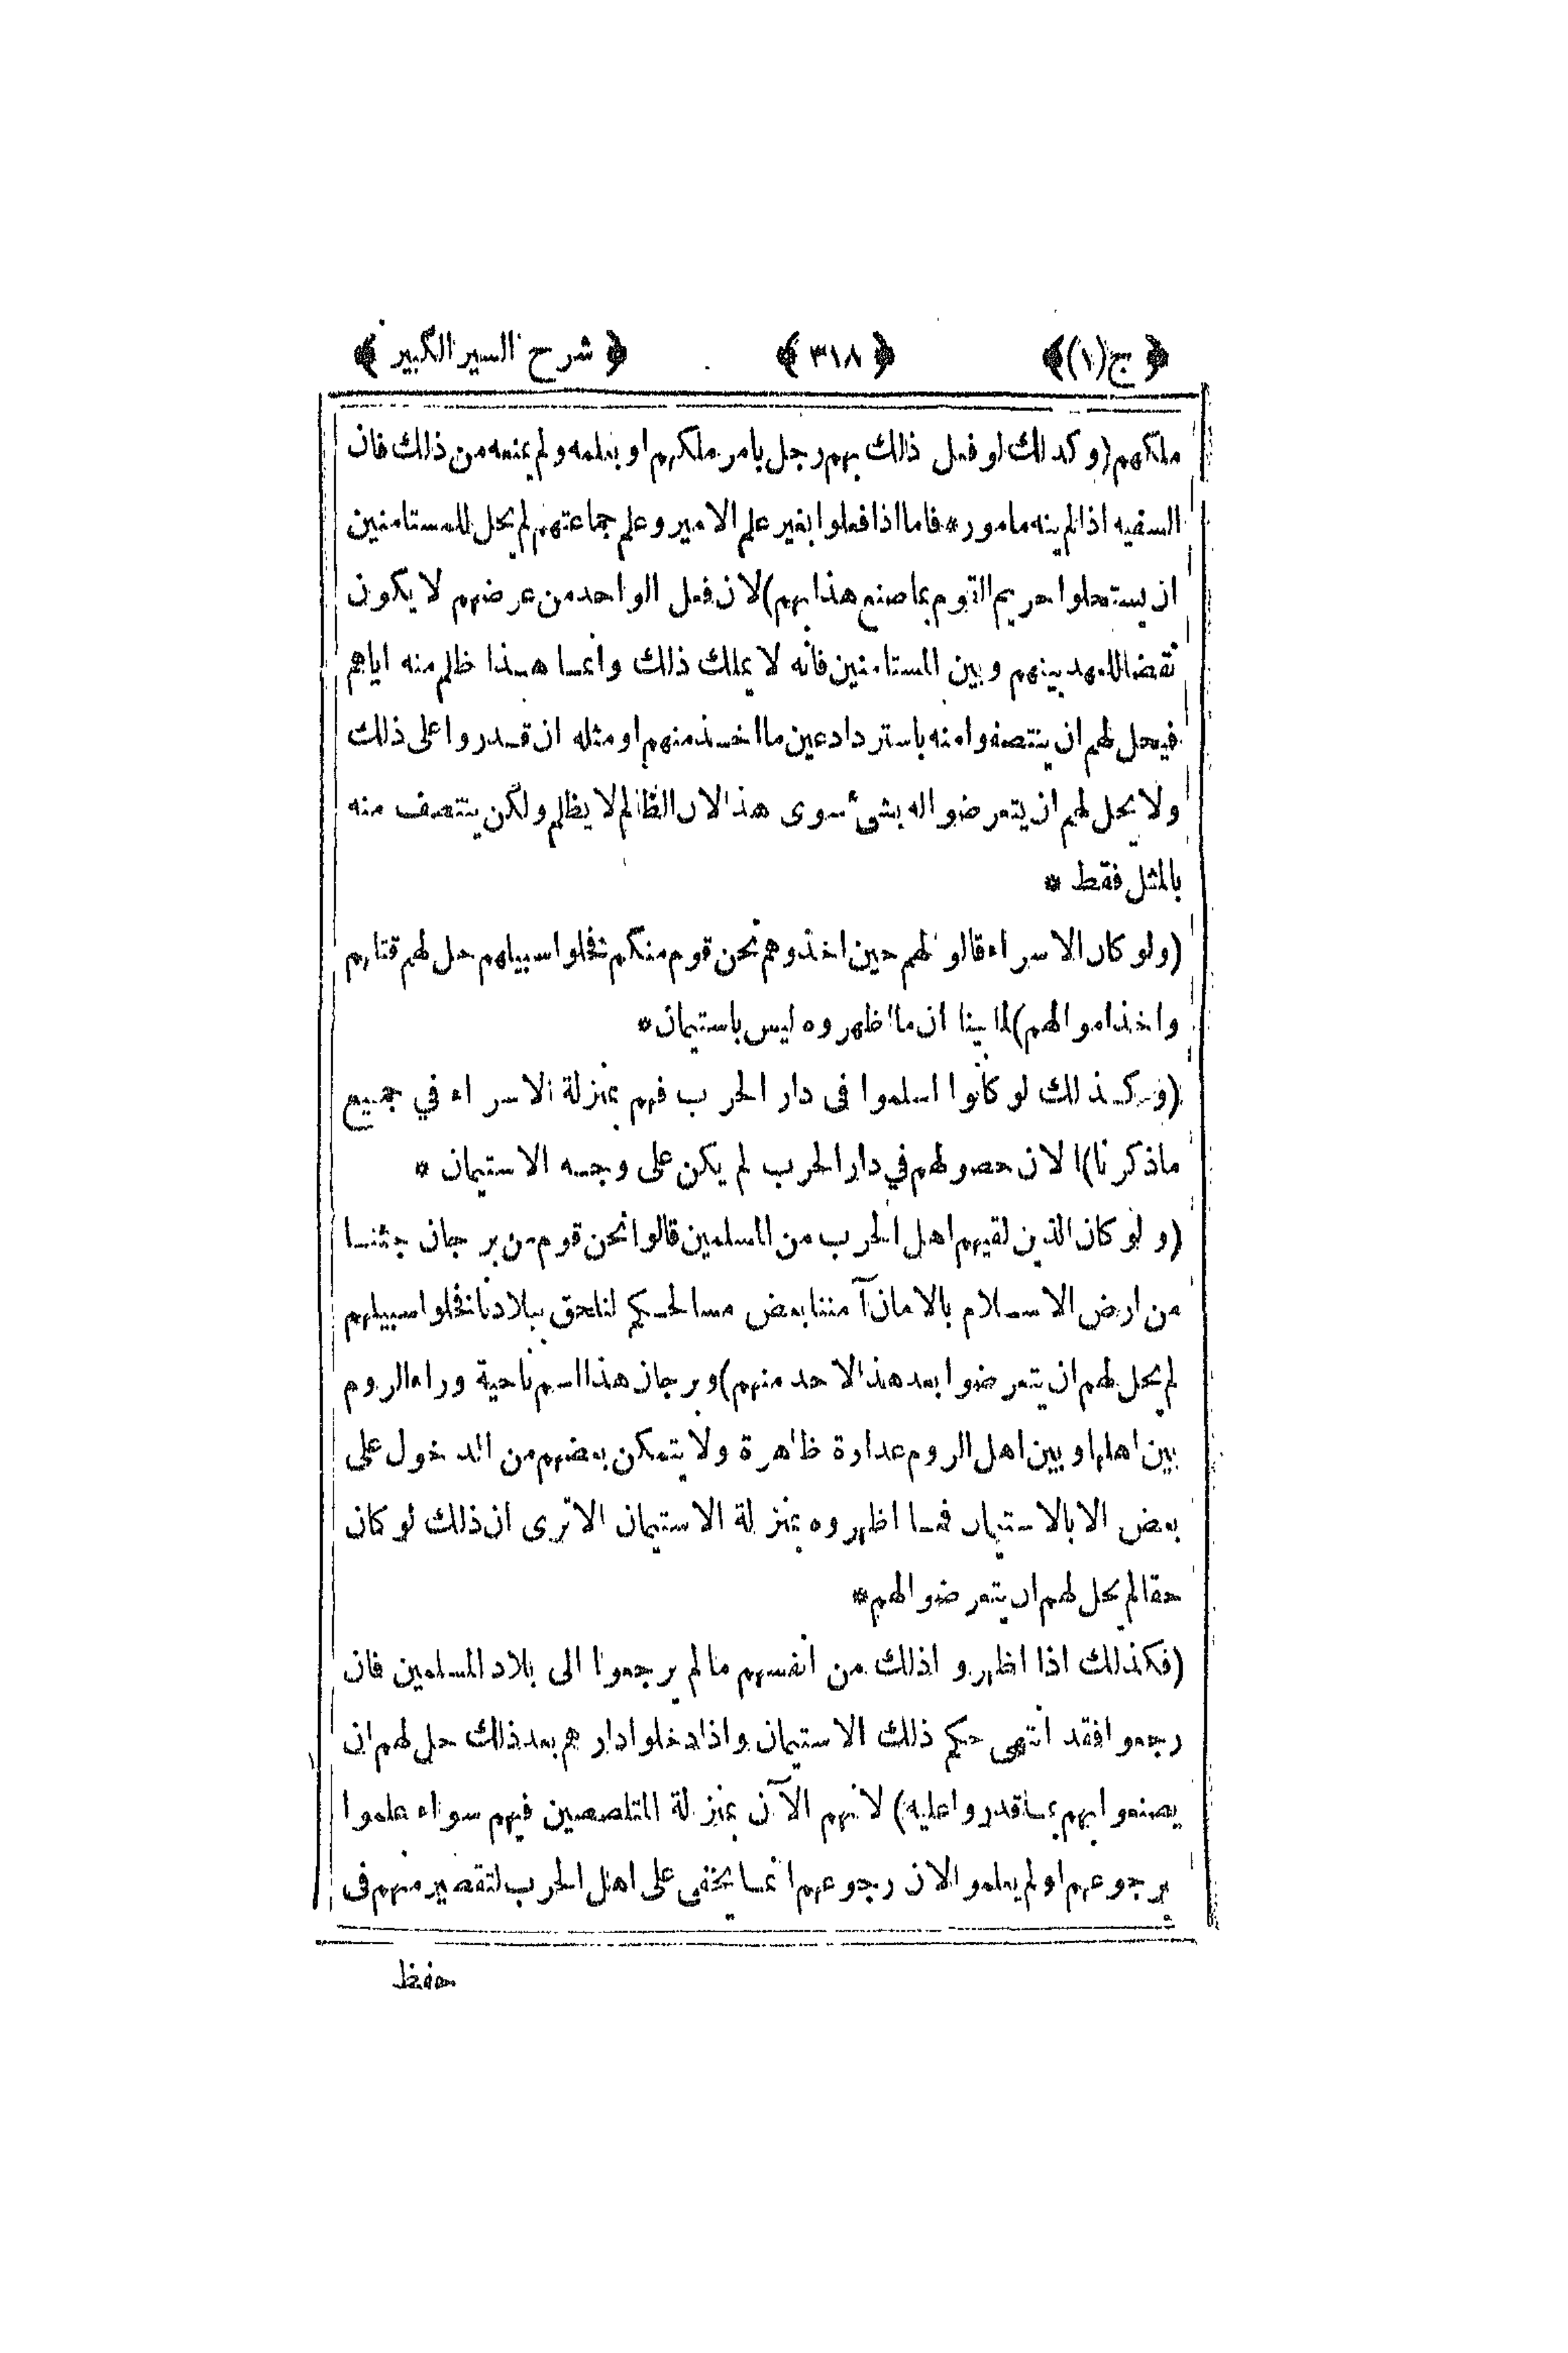 ﴿ ج(١)﴾ ﴿ ٣١٨ ﴾ ﴿ شرح السير الكبير ﴾
ملكهم(وكذلك لو فعل ذلك بهم رجل بامر ملكهم او بعلمه ولم يمنعه من ذلك فان
السفيه اذا لم ينه مامور* فاما اذا فعلوا بغير علم الامير وعلم جماعتهم لم يحل للمستامنين
ان يستحلوا حريم القوم بما صنع هذا بهم) لان فعل الواحد من عرضهم لا يكون
نقضا للعهد بينهم وبين المستامنين فانه لا يملك ذلك وانما هذا ظلم منه اياهم
فيحل لهم ان ينتصفوا منه باسترداد عين ما اخذ منهم او مثله ان قدروا على ذلك
ولا يحل لهم ان يتعرضوا له بشيء سوى هذا لان الظالم لا يظلم ولكن ينتصف منه
بالمثل فقط *
(ولو كان الاسراء قالوا لهم حين اخذوهم نحن قوم منكم فخلوا سبيلهم حل لهم قتلهم
واخذ اموالهم) لما بينا ان ما اظهروه ليس باستيمان*
(وكذلك لو كانوا اسلموا فى دار الحرب فهم بمنزلة الاسراء في جميع
ما ذكرنا) لان حصولهم في دار الحرب لم يكن على وجه الاستيمان *
(ولو كان الذين لقيهم اهل الحرب من المسلمين قالوا نحن قوم من برجان جئنا
من ارض الاسلام بالامان آمننا بعض مسالحكم لنلحق ببلادنا فخلوا سبيلهم
لم يحل لهم ان يتعرضوا بعد هذا لاحد منهم) وبرجان هذا اسم ناحية وراء الروم
بين اهلها وبين اهل الروم عداوة ظاهرة ولا يتمكن بعضهم من الدخول على
بعض الا بالاستيمان فما اظهروه بمنزلة الاستيمان الا ترى ان ذلك لو كان
حقا لم يحل لهم ان يتعرضوا لهم*
(فكذلك اذا اظهروا ذلك من انفسهم ما لم يرجعوا الى بلاد المسلمين فان
رجعوا فقد انتهى حكم ذلك الاستيمان واذا دخلوا دارهم بعد ذلك حل لهم ان
يصنعوا بهم ما قدروا عليه) لانهم الآن بمنزلة المتلصصين فيهم سواء علموا
برجوعهم او لم يعلموا لان رجوعهم انما يخفى على اهل الحرب لتقصير منهم فى
حفظ